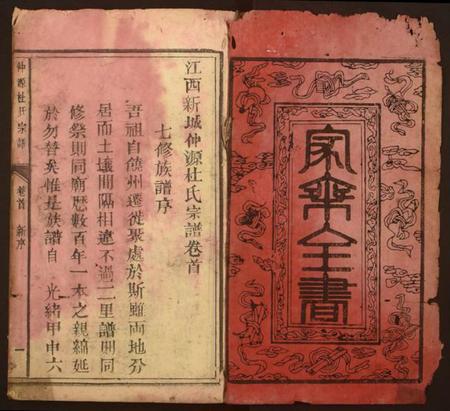 家乘全書
江西新城仲源杜氏宗譜卷首
七修族譜序
吾祖自饒州遷徙聚處於斯雖兩地分
居而土壤間隔相遼不過二里譜則同
修祭則同廟歷數百年一本之親綿延
於勿替矣惟是族譜自 光緒甲申六
仲源杜氏宗譜 卷首 新序 一